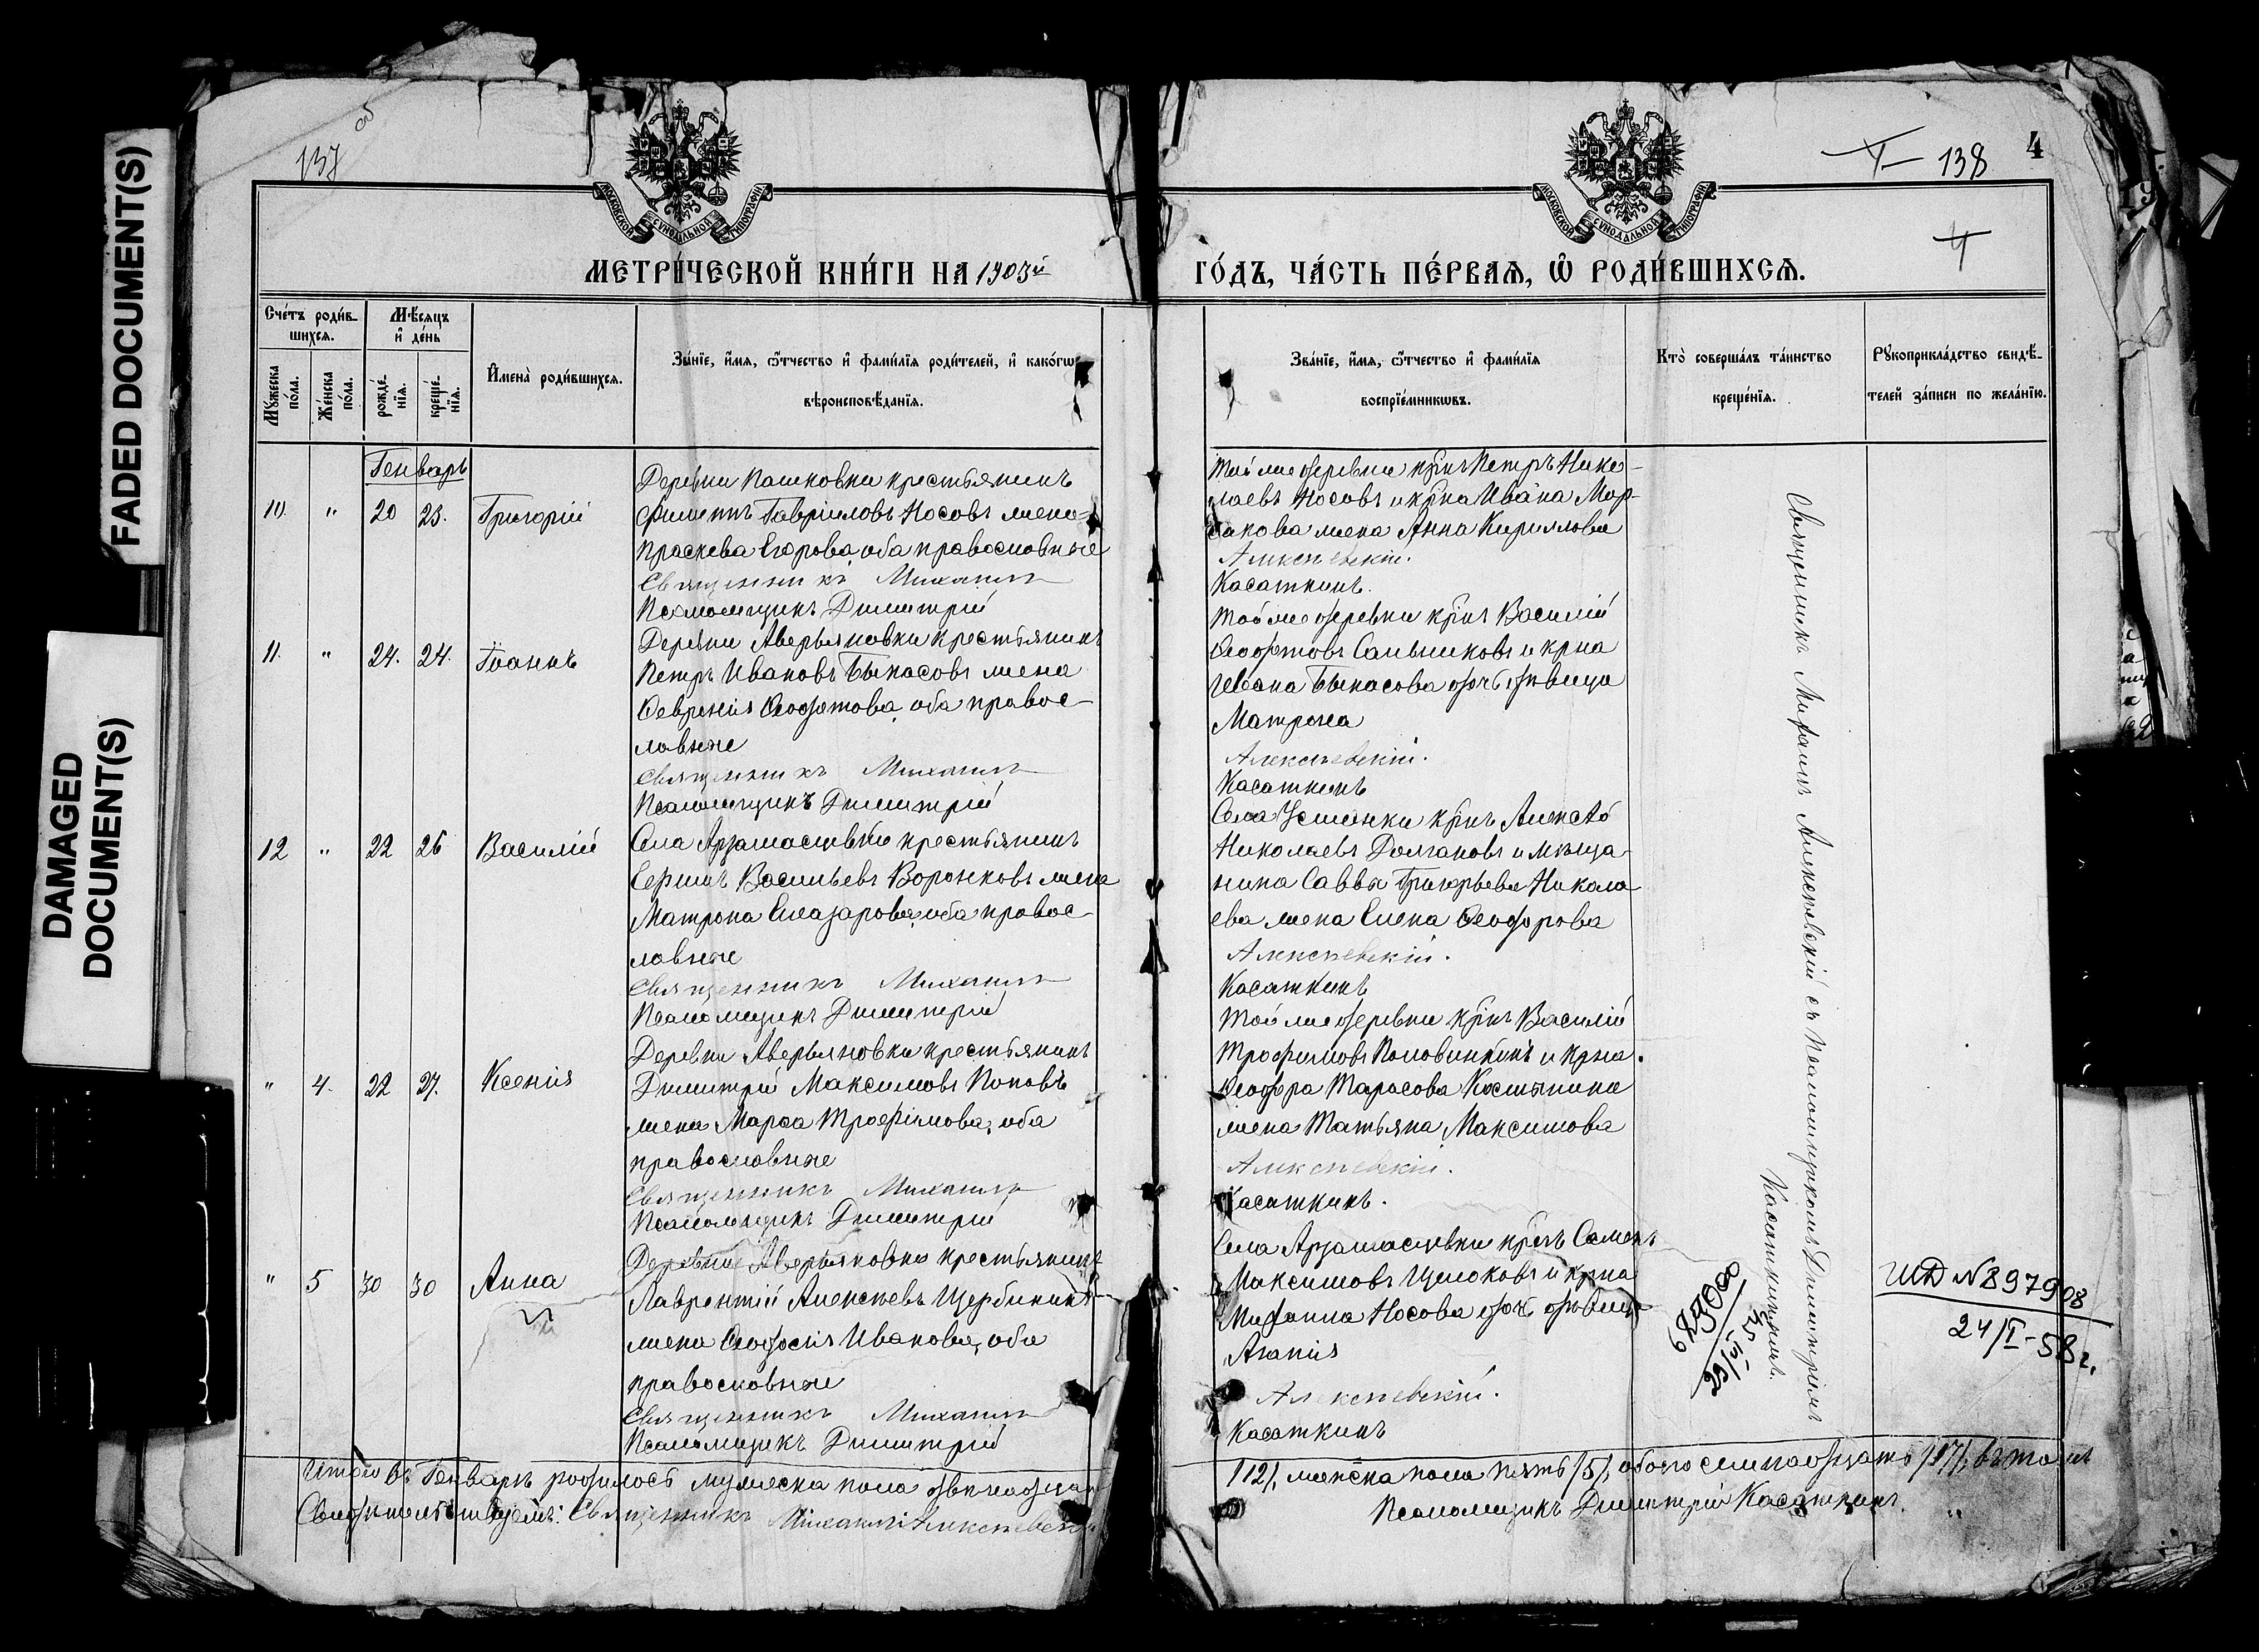 FADED DOCUMENT(S)
DAMAGED
DOCUMENT(S)
137
МОСКОВСКОЙ СѴНОДАЛЬНОЙ ТИПОГРАФІИ
МЕТРИ́ЧЕСКОЙ КНИ́ГИ НА 1903й
Сче́тъ роди́в-
шихсѧ.
Мѣ́сѧцъ
и҆ де́нь
Мꙋ́жеска
по́ла.
Же́нска
по́ла.
рожде́-
нїѧ.
креще́-
нїѧ.
И҆мена̀ роди́вшихсѧ.
Зва́нїе, и҆́мѧ, ѻ҆́тчество и҆ фами́лїѧ роди́телей, и҆ како́гѡ
вѣроисповѣ́данїѧ.
Генварь
10. " 20 23. Григорій
Деревни Пашковки крестьянинъ
Филиппъ Гавріиловъ Носовъ жена
Праскева Егорова, оба православные
Священникъ Михаилъ
Псаломщикъ Димитрій
11. " 24. 24. Іоаннъ
Деревни Аверьяновки крестьянинъ
Петръ Ивановъ Быкасовъ жена
Февронія Ѳеодотова, оба правос-
лавные
Священникъ Михаилъ
Псаломщикъ Димитрій
12 " 22 26 Василій
Села Арзамасцевки крестьянинъ
Сергій Васильевъ Воронковъ жена
Матрона Елазарова, оба правос-
лавные
Священникъ Михаилъ
Псаломщикъ Димитрій
" 4. 22 27. Ксенія
Деревни Аверьяновки крестьянинъ
Димитрій Максимовъ Поповъ
жена Марѳа Трофимова, оба
православные
Священникъ Михаилъ
Псаломщикъ Димитрій
" 5 30 30 Анна
Деревни Аверьяновки крестьянинъ
Лаврентій Алексѣевъ Щербининъ
жена Ѳеодосія Иванова, оба
православные
Священникъ Михаилъ
Псаломщикъ Димитрій
Итого въ Генварѣ родилось мужеска пола двѣнадцать
Свидѣтельствуемъ: Священникъ Михаилъ Алексѣевскій
138 4
4
МОСКОВСКОЙ СѴНОДАЛЬНОЙ ТИПОГРАФІИ
ГО́ДЪ, ЧА́СТЬ ПЕ́РВАѦ, Ѡ҆ РОДИ́ВШИХСѦ.
Зва́нїе, и҆́мѧ, ѻ҆́тчество и҆ фами́лїѧ
воспрїе́мникѡвъ.
Кто̀ соверша́лъ та́инство
креще́нїѧ.
Рꙋкоприкла́дство свидѣ́-
телей за́писи по жела́нїю.
Той же деревни крнъ Петръ Нико-
лаевъ Носовъ и крна Ивана Мор-
дакова жена Анна Кириллова
Алексѣевскій.
Касаткинъ.
Той же деревни крнъ Василій
Ѳеодотовъ Сальниковъ и крна
Ивана Быкасова дочь дѣвица
Матрона
Алексѣевскій.
Касаткинъ
Села Устинки крнъ Алексѣй
Николаевъ Долгановъ и мѣща-
нина Саввы Григорьева Никола-
ева жена Елена Ѳеодорова
Алексѣевскій.
Касаткинъ
Той же деревни крнъ Василій
Трофимовъ Половинкинъ и крна
Ѳеодора Тарасова Костынина
жена Татьяна Максимова
Алексѣевскій.
Касаткинъ.
Села Арзамасцевки крнъ Семенъ
Максимовъ Щелоковъ и крна
Носова дочь дѣвица
Агапія
Алексѣевскій.
Касаткинъ
/12/, женска пола пять /5/, обоего семнадцать /17/, въ томъ
Псаломщикъ Димитрій Касаткинъ.
Священникъ Михаилъ Алексѣевскій съ псаломщикомъ Димитріемъ
Касаткинымъ.
23/VI-54
ИД № 897908
24/I-58 г.